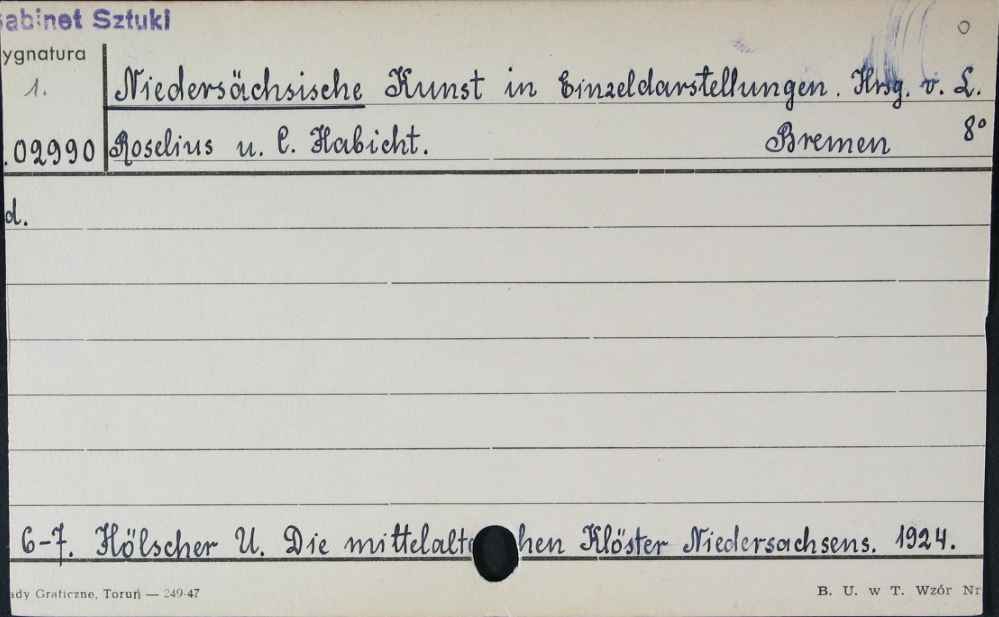 abinet Sztuki
ygnatura
1.
Niedersächsische Kunst in Einzeldarstellungen. Hrsg. v. L.
.02990 Roselius u. C. Habicht. Bremen 8°
d.
6-7. Hölscher U. Die mittelalte hen Klöster Niedersachsens. 1924.
ady Graficzne, Toruń — 249-47 B. U. w T. Wzór Nr